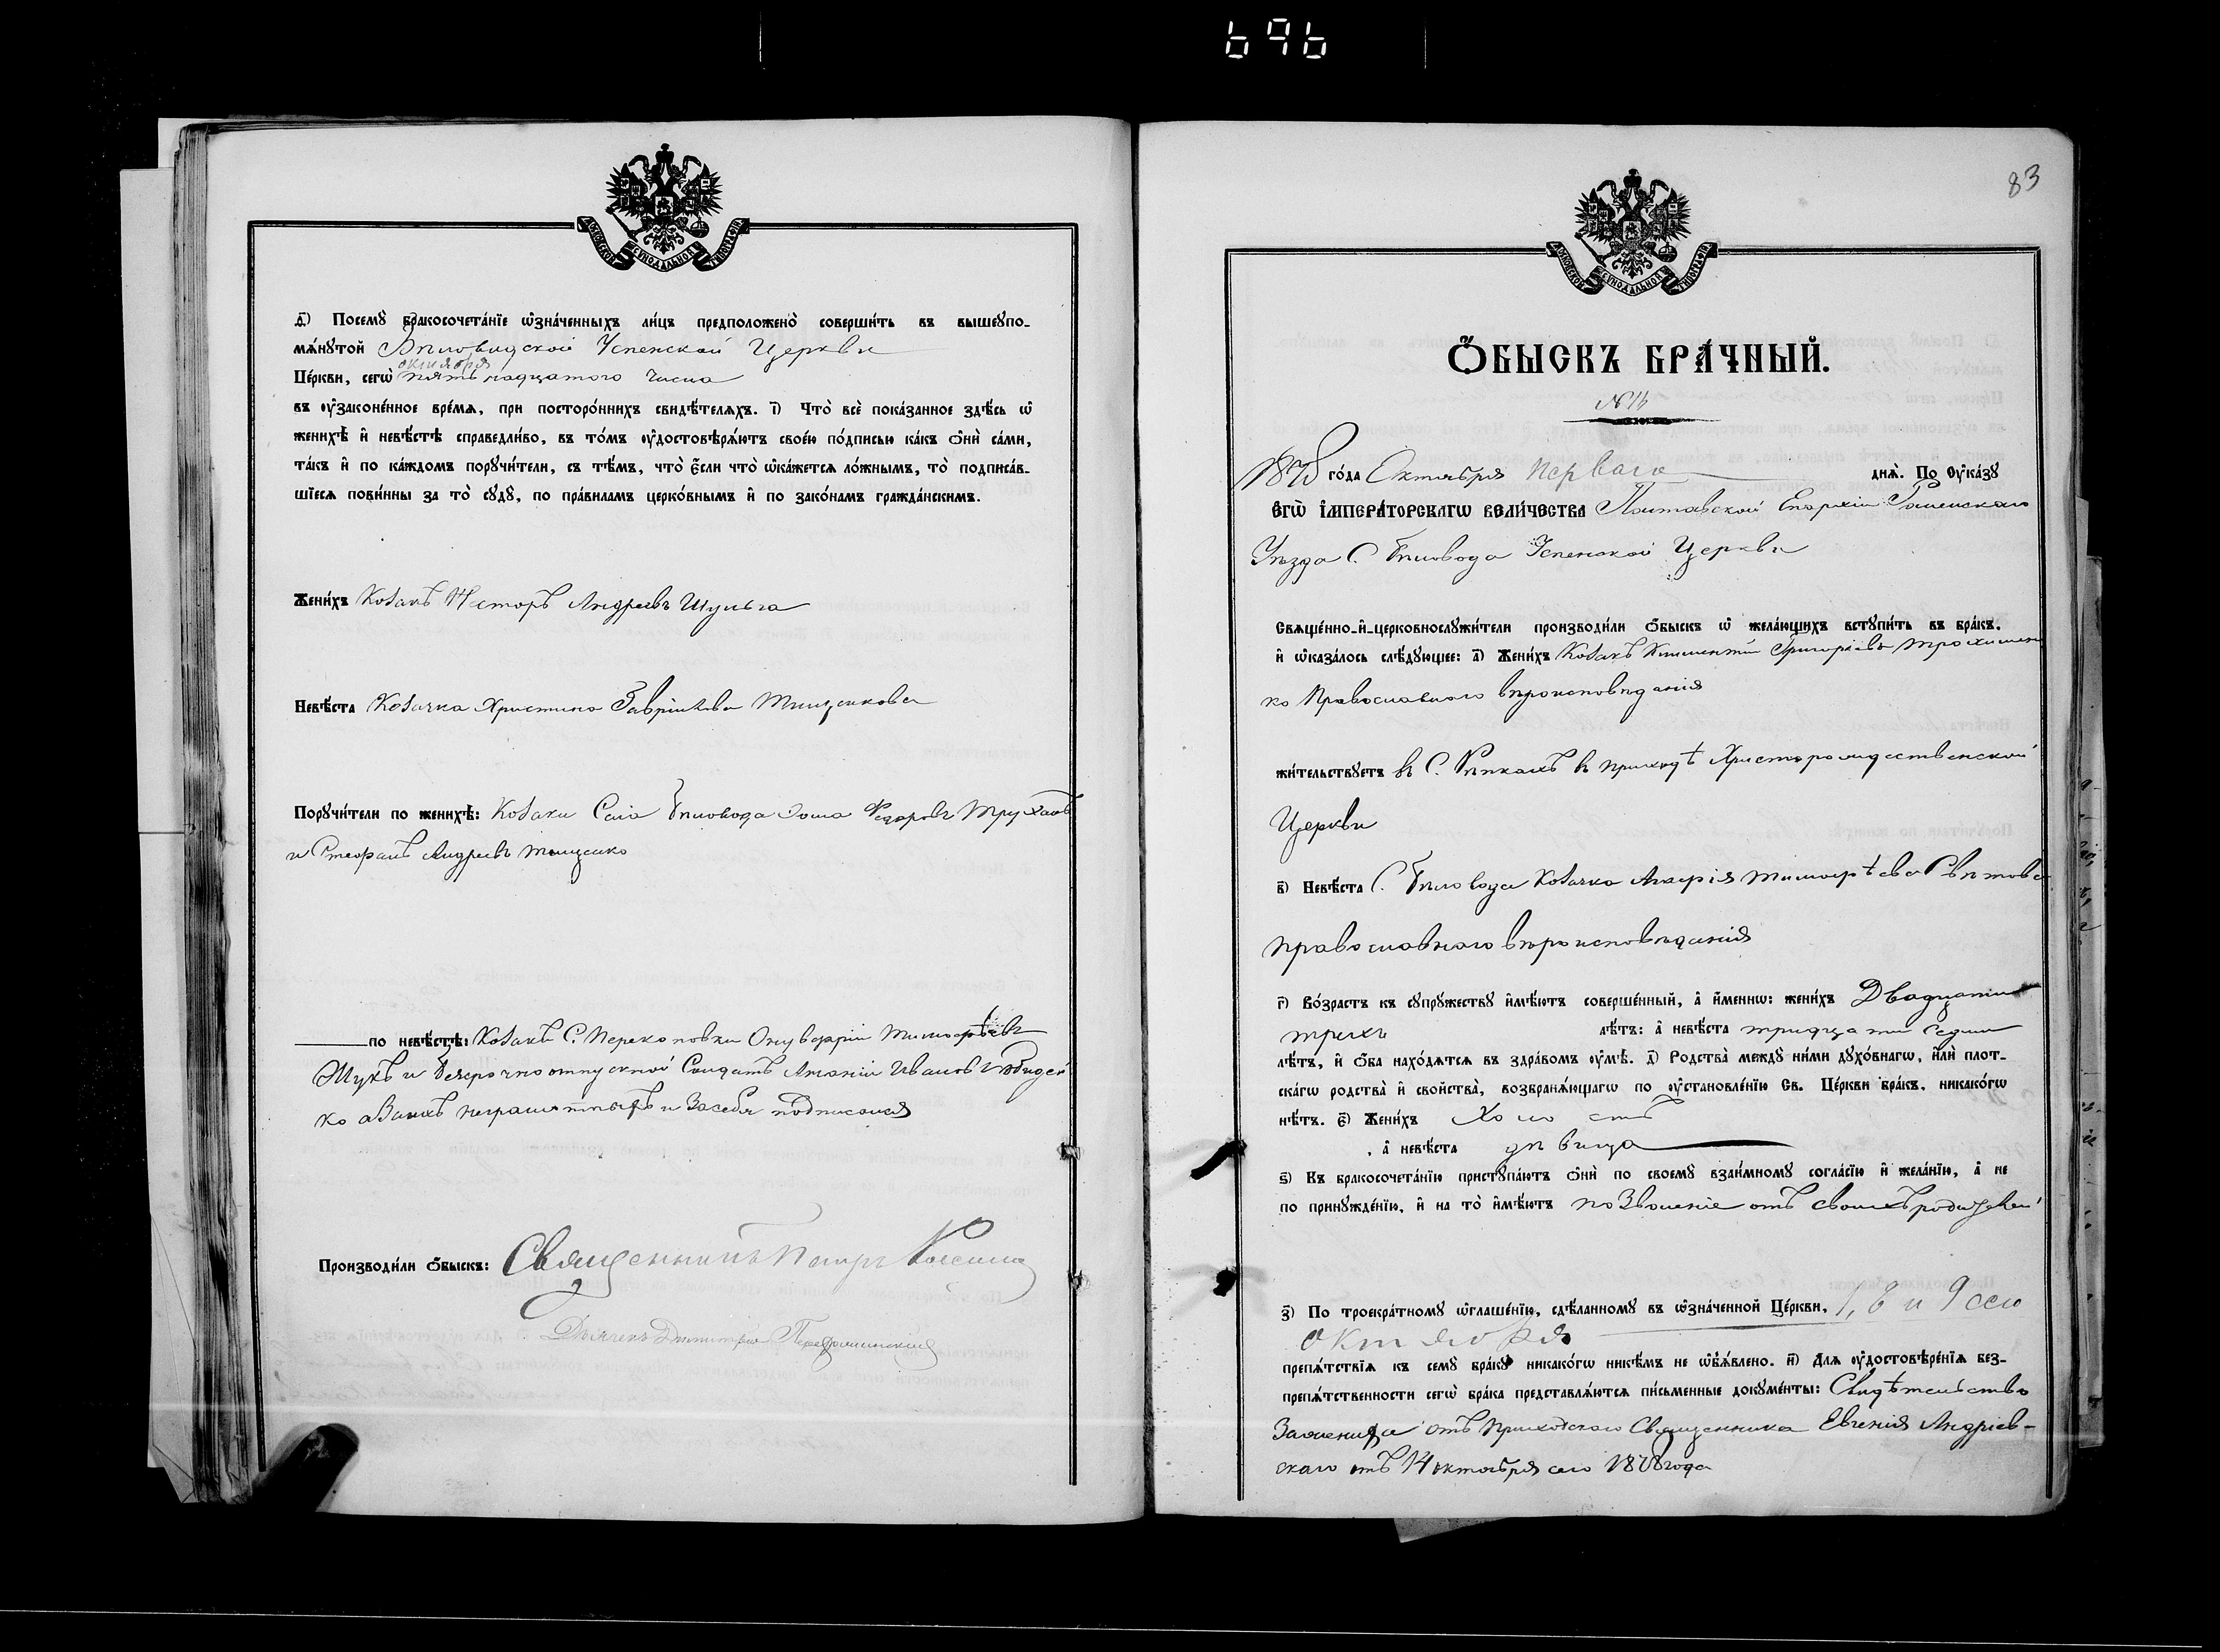 696
МОСКОВСКОЙ СѴНОДАЛЬНОЙ ТИПОГРАФІИ
Посемꙋ̀ бракосочета́нїе ѡ҆зна́ченныхъ ли́цъ предположено̀ соверши́ть въ вышеꙋпо-
мѧ́нꙋтой Бѣловодской Успенской Церкви
октября
Це́ркви, сегѡ̀ пятьнадцатого числа
въ ѹ҆законе́нное вре́мѧ, при посторо́ннихъ свидѣ́телѧхъ. і҃) Что̀ всѐ пока́занное здѣ́сь ѡ҆
женихѣ̀ и҆ невѣ́стѣ справедли́во, въ то́мъ ѹ҆достовѣрѧ́ютъ свое́ю по́дписью ка́къ ѻ҆нѝ са́ми,
та́къ и҆ по ка́ждомъ порꙋчи́тели, съ тѣ́мъ, что̀ є҆́сли что̀ ѡ҆ка́жетсѧ ло́жнымъ, то̀ подписа́в-
шїесѧ пови́нны за то̀ сꙋдꙋ̀, по пра́виламъ церко́внымъ и҆ по зако́намъ гражда́нскимъ.
Жени́хъ Козакъ Несторъ Андреевъ Шульга
Невѣ́ста Козачка Христина Гавріилова Тищенкова
Порꙋчи́тели по женихѣ̀: Козаки Села Бѣловода Фома Федоровъ Труханъ
и Стефанъ Андреевъ Тищенко
по невѣ́стѣ: Козакъ С. Перекоповки Онуфрій Тимофѣевъ
Жукъ и безсрочноотпускной Солдатъ Ананій Ивановъ
ко а за ихъ неграмотныхъ и За себя подписался
Производи́ли ѻ҆́быскъ: Священникъ Петръ
Дьячекъ Димитрій
83
МОСКОВСКОЙ СѴНОДАЛЬНОЙ ТИПОГРАФІИ
Ѻ҆́БЫСКЪ БРА́ЧНЫЙ.
№ 16
1878 го́да Октября перваго днѧ̀. По ѹ҆ка́зꙋ
ЕГѠ̀ І҆МПЕРА́ТОРСКАГѠ ВЕЛИ́ЧЕСТВА Полтавской Епархіи Роменскаго
Уѣзда С. Бѣловода Успенской Церкви
Свѧще́нно-и҆-церковнослꙋжи́тели производи́ли ѻ҆́быскъ ѡ҆ жела́ющихъ встꙋпи́ть въ бра́къ,
и҆ ѡ҆каза́лось слѣ́дꙋющее: а҃) Жени́хъ Козакъ Климентій Григоріевъ Трохимен
ко Православнаго вѣроисповѣданія
жи́тельствꙋетъ въ С. Рѣпкахъ въ приходѣ Христорождественской
Церкви
в҃) Невѣ́ста С. Бѣловода Козачка Агафія Тимофѣева
православнаго вѣроисповѣданія
г҃) Во́зрастъ къ сꙋпрꙋ́жествꙋ и҆мѣ́ютъ соверше́нный, а҆ и҆́менно: жени́хъ Двадцати
трехъ лѣ́тъ: а҆ невѣ́ста тридцати седми
лѣ́тъ, и҆ ѻ҆́ба нахо́дѧтсѧ въ здра́вомъ ѹ҆мѣ̀. д҃) Родства̀ междꙋ ни́ми дꙋхо́внагѡ, и҆лѝ плот-
ска́гѡ родства̀ и҆ сво́йства, возбранѧ́ющагѡ по ѹ҆становле́нїю Св. Це́ркви бра́къ, никако́гѡ
нѣ́тъ. є҃) Жени́хъ Холостъ
, а҆ невѣ́ста дѣвица
ѕ҃) Къ бракосочета́нїю пристꙋпа́ютъ ѻ҆нѝ по своемꙋ̀ взаи́мномꙋ согла́сїю и҆ жела́нїю, а҆ не
по принꙋжде́нїю, и҆ на то̀ и҆мѣ́ютъ позволеніе отъ своихъ родителей
з҃) По троекра́тномꙋ ѡ҆глаше́нїю, сдѣ́ланномꙋ въ ѡ҆зна́ченной Це́ркви, 1, 8 и 9 сего
октября
препѧ́тствїѧ къ семꙋ̀ бра́кꙋ никако́гѡ никѣ́мъ не ѡ҆б̾ѧ́влено. и҃) Длѧ ѹ҆достовѣре́нїѧ без-
препѧ́тственности сегѡ̀ бра́ка представлѧ́ютсѧ пи́сьменные докꙋме́нты: Свидѣтельство
За жениха отъ приходского Священника Евгенія Андріев-
скаго отъ 14 октября сего 1878 года